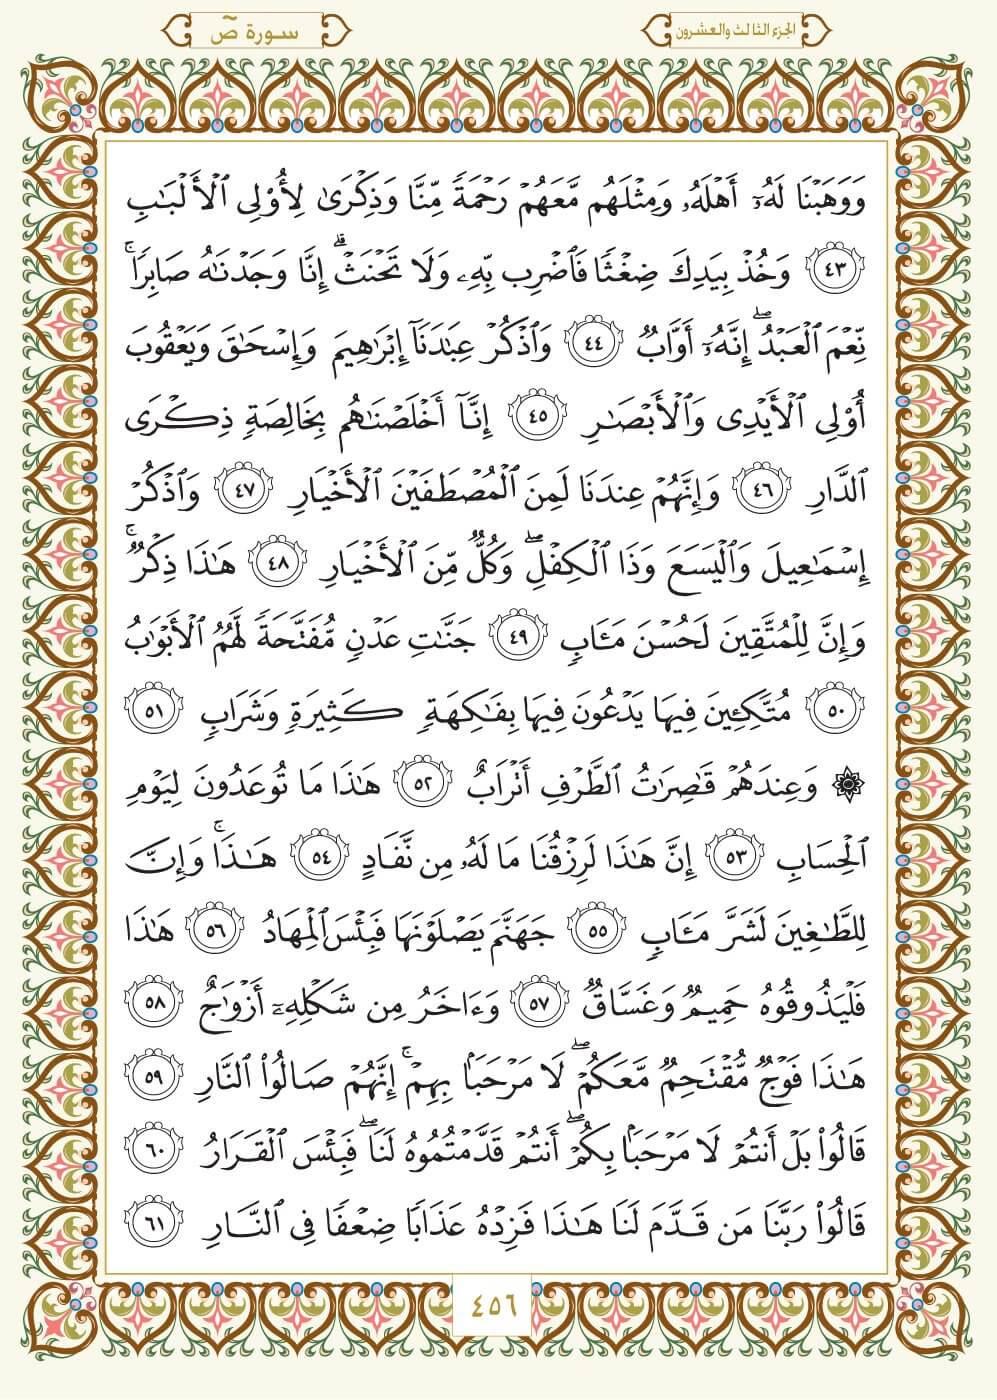 الجزء الثالث والعشرون
سورة صٓ
وَوَهَبْنَا لَهُۥٓ أَهْلَهُۥ وَمِثْلَهُم مَّعَهُمْ رَحْمَةً مِّنَّا وَذِكْرَىٰ لِأُو۟لِى ٱلْأَلْبَـٰبِ
٤٣ وَخُذْ بِيَدِكَ ضِغْثًا فَٱضْرِب بِّهِۦ وَلَا تَحْنَثْ ۗ إِنَّا وَجَدْنَـٰهُ صَابِرًا ۚ
نِّعْمَ ٱلْعَبْدُ ۖ إِنَّهُۥٓ أَوَّابٌ ٤٤ وَٱذْكُرْ عِبَـٰدَنَآ إِبْرَٰهِيمَ وَإِسْحَـٰقَ وَيَعْقُوبَ
أُو۟لِى ٱلْأَيْدِى وَٱلْأَبْصَـٰرِ ٤٥ إِنَّآ أَخْلَصْنَـٰهُم بِخَالِصَةٍ ذِكْرَى
ٱلدَّارِ ٤٦ وَإِنَّهُمْ عِندَنَا لَمِنَ ٱلْمُصْطَفَيْنَ ٱلْأَخْيَارِ ٤٧ وَٱذْكُرْ
إِسْمَـٰعِيلَ وَٱلْيَسَعَ وَذَا ٱلْكِفْلِ ۖ وَكُلٌّ مِّنَ ٱلْأَخْيَارِ ٤٨ هَـٰذَا ذِكْرٌ ۚ
وَإِنَّ لِلْمُتَّقِينَ لَحُسْنَ مَـَٔابٍ ٤٩ جَنَّـٰتِ عَدْنٍ مُّفَتَّحَةً لَّهُمُ ٱلْأَبْوَٰبُ
٥٠ مُتَّكِـِٔينَ فِيهَا يَدْعُونَ فِيهَا بِفَـٰكِهَةٍ كَثِيرَةٍ وَشَرَابٍ ٥١
۞ وَعِندَهُمْ قَـٰصِرَٰتُ ٱلطَّرْفِ أَتْرَابٌ ٥٢ هَـٰذَا مَا تُوعَدُونَ لِيَوْمِ
ٱلْحِسَابِ ٥٣ إِنَّ هَـٰذَا لَرِزْقُنَا مَا لَهُۥ مِن نَّفَادٍ ٥٤ هَـٰذَا ۚ وَإِنَّ
لِلطَّـٰغِينَ لَشَرَّ مَـَٔابٍ ٥٥ جَهَنَّمَ يَصْلَوْنَهَا فَبِئْسَ ٱلْمِهَادُ ٥٦ هَـٰذَا
فَلْيَذُوقُوهُ حَمِيمٌ وَغَسَّاقٌ ٥٧ وَءَاخَرُ مِن شَكْلِهِۦٓ أَزْوَٰجٌ ٥٨
هَـٰذَا فَوْجٌ مُّقْتَحِمٌ مَّعَكُمْ ۖ لَا مَرْحَبًۢا بِهِمْ ۚ إِنَّهُمْ صَالُوا۟ ٱلنَّارِ ٥٩
قَالُوا۟ بَلْ أَنتُمْ لَا مَرْحَبًۢا بِكُمْ ۖ أَنتُمْ قَدَّمْتُمُوهُ لَنَا ۖ فَبِئْسَ ٱلْقَرَارُ ٦٠
قَالُوا۟ رَبَّنَا مَن قَدَّمَ لَنَا هَـٰذَا فَزِدْهُ عَذَابًا ضِعْفًا فِى ٱلنَّارِ ٦١
٤٥٦